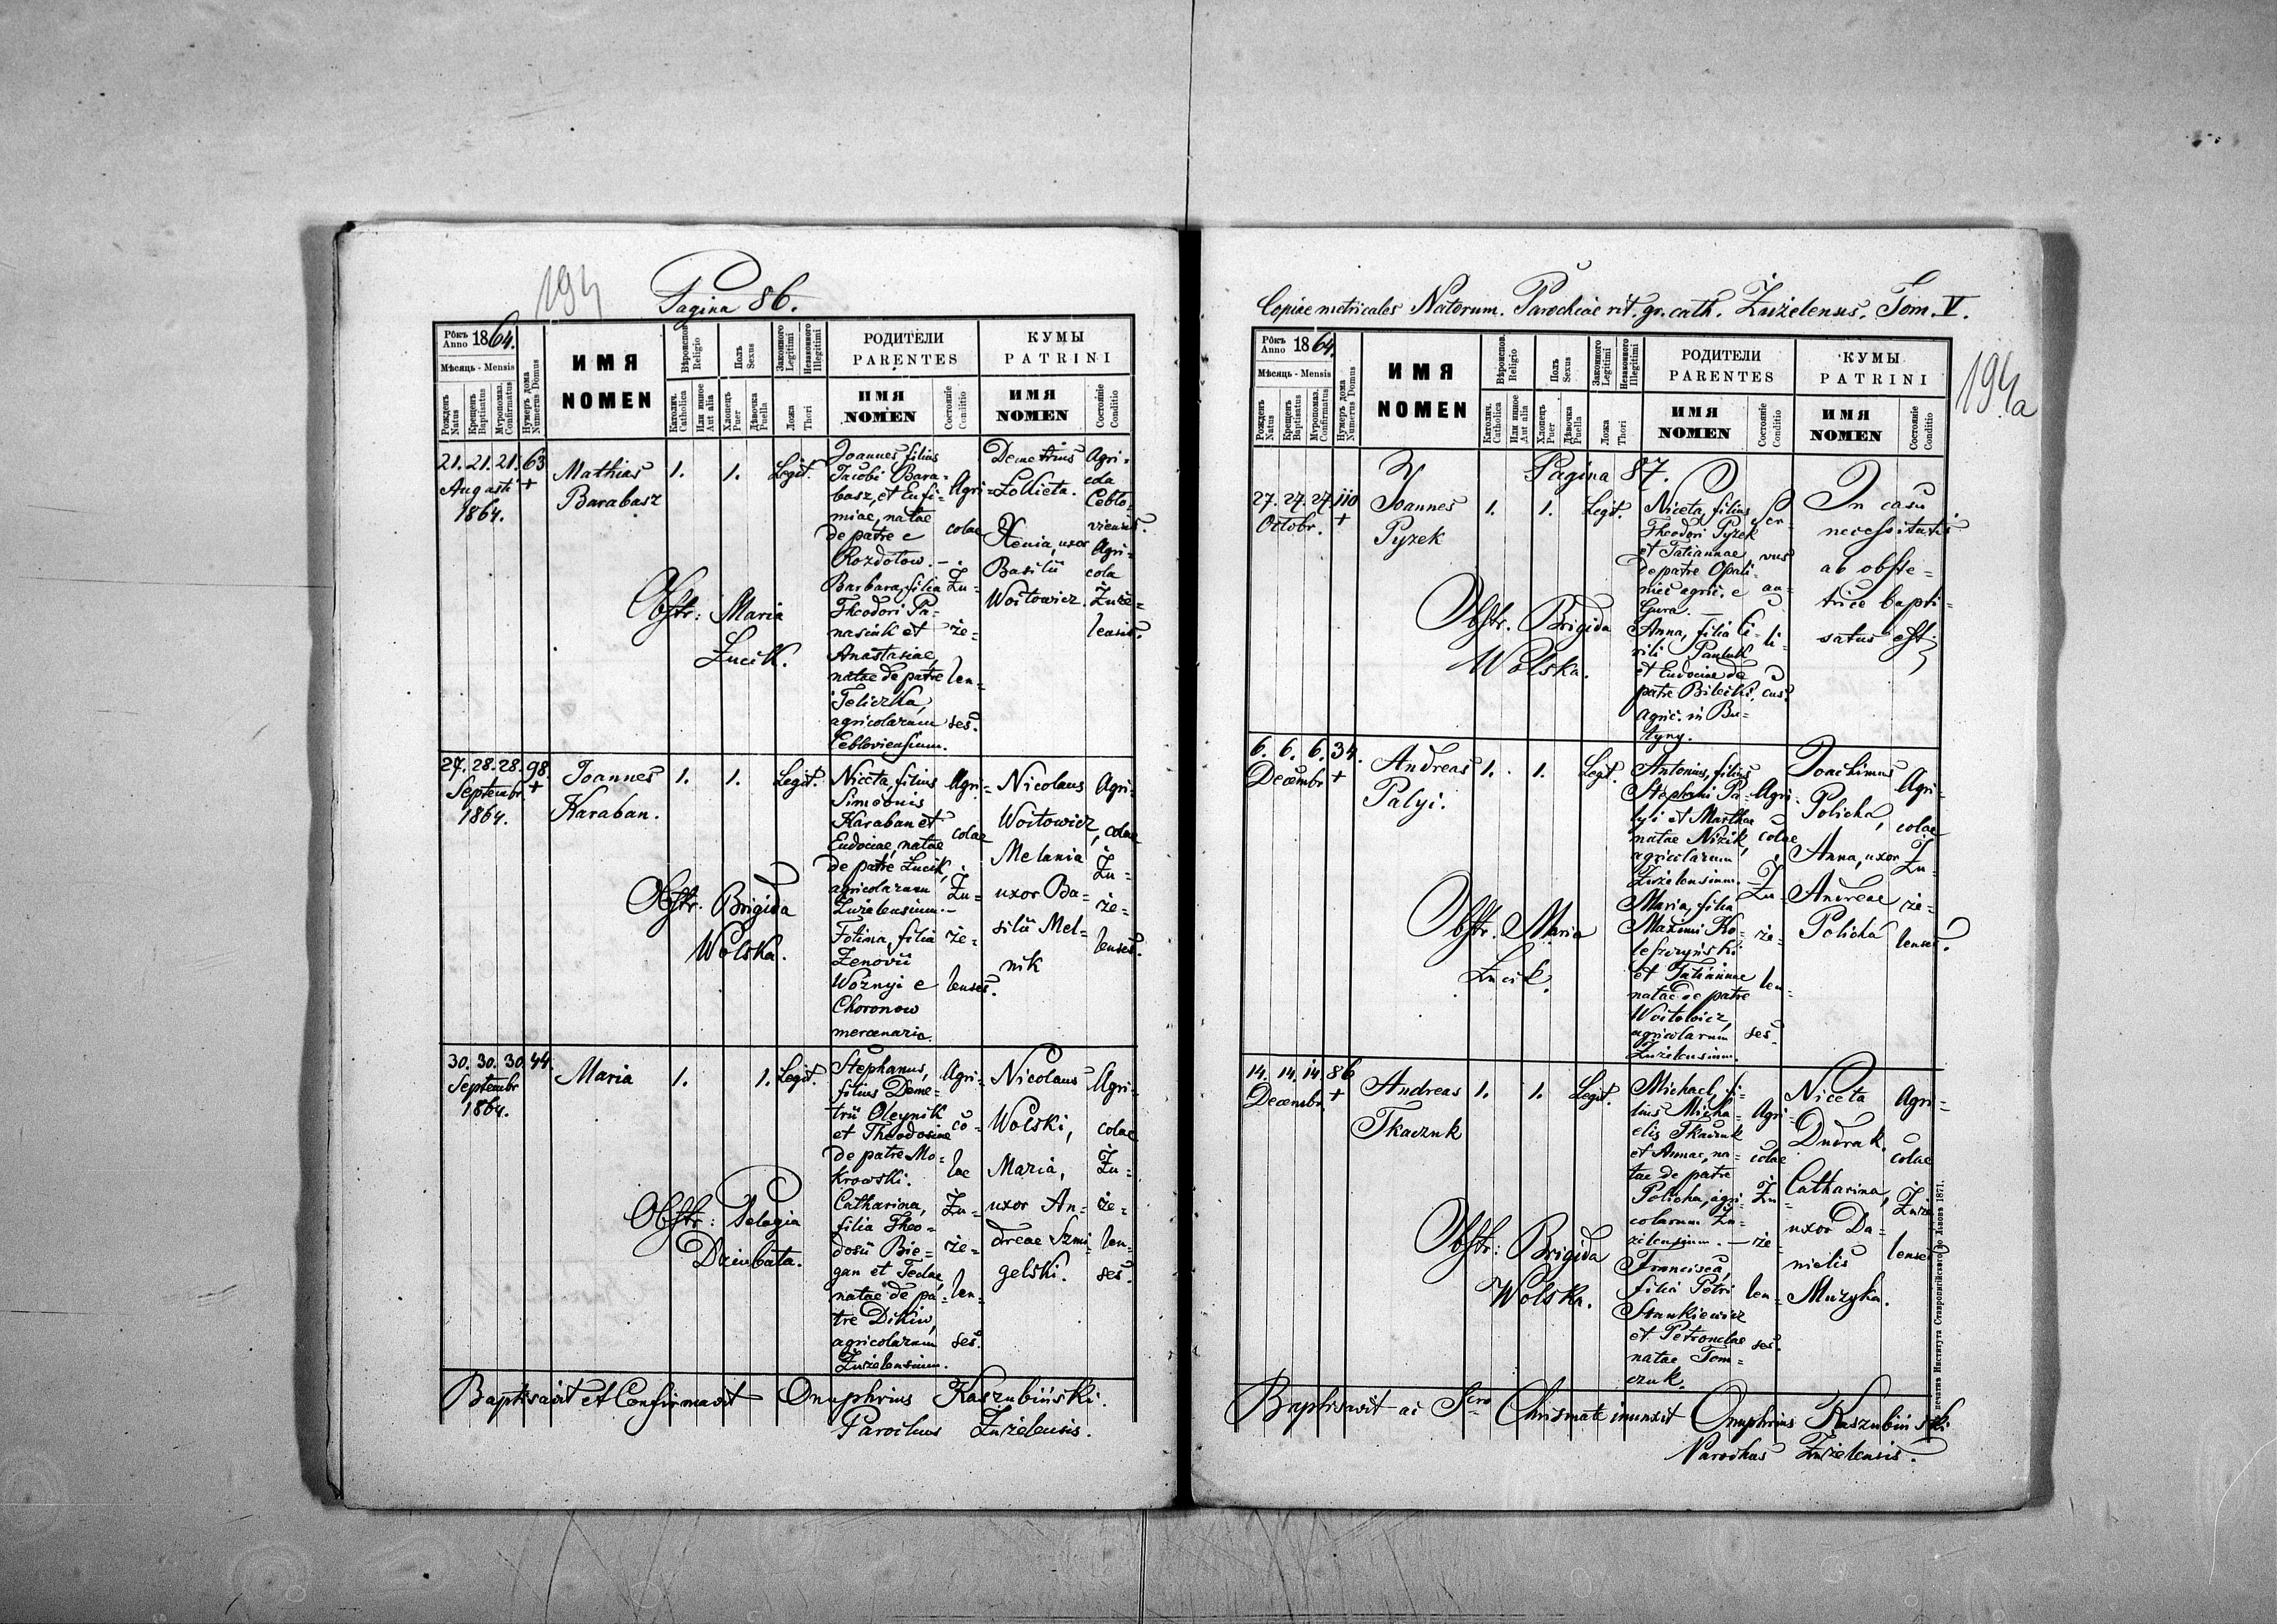 194
Pagina 86.
Рôкъ Anno 1864.
Мѣсяць - Mensis
Рожденъ Natus
Крещенъ Baptisatus
Мѵропомаз. Confirmatus
Нумеръ дома Numerus Domus
ИМЯ
NOMEN
Вѣроиспов. Religio
Католич. Catholica
Или иное Aut alia
Полъ Sexus
Хлопецъ Puer
Дѣвочка Puella
Законного Legitimi
Незаконного Illegitimi
Ложа Thori
РОДИТЕЛИ
PARENTES
ИМЯ
NOMEN
Состоянiе Conditio
КУМЫ
PATRINI
ИМЯ
NOMEN
Состоянiе Conditio
21. 21. 21. 63
Augusti +
1864.
Mathias
Barabasz
1. 1. Legit.
Obstr: Maria
Łucik.
Joannes filius
Jacobi Bara-
basz, et Eufi-
miae, natae
de patre e
Rozdołow. —
Barbara, filia
Theodori Pa-
nasiuk et
Anastasiae,
natae de patre
Teliczka,
agricolarum
Cebloviensium.
Agri-
colae
Żu-
że-
len-
ses.
Demetrius
Xenia, uxor
Basilii
Woitowicz.
Agri-
cola
Ceblo-
viensis.
Agri-
cola
Żuże-
lensis.
27. 28. 28. 98.
Septembr. +
1864.
Joannes
Karaban.
1. 1. Legit.
Obstr. Brigida
Wolska.
Niceta, filius
Simeonis
Karaban et
Eudociae, natae
de patre Łucik,
agricolarum
Żuzelensium. —
Fotina, filia
Zenovii
Woznyi e
Choronow
mercenaria.
Agri-
colae
Żu-
że-
lenses.
Nicolaus
Woitowicz,
Melania
uxor Ba-
silii Mel-
nik
Agri-
colae
Żu-
że-
lenses.
30. 30. 30. 44.
Septembr
1864.
Maria
1. 1. Legit.
Obstr: Pelagia
Dziubata.
Stephanus,
filius Deme-
trii Oleynik
et Theodosiae
de patre Mo-
krowski.
Catharina,
filia Theo-
dosii Bie-
gan et Teclae,
natae de pa-
tre Dikiw,
agricolarum
Żuzelensium.
Agri-
co-
lae
Żu-
że-
len-
ses.
Nicolaus
Wolski,
Maria,
uxor An-
dreae Szmi-
gelski.
Agri-
colae
Żu-
że-
len-
ses.
Baptisavit et Confirmavit Onuphrius Kaszubiński.
Parochus Żużelensis.
Copiae metricales Natorum. Parochiae rit. gr. cath. Żużelensis. Tom. V.
194a
Рôкъ Anno 1864.
Мѣсяць - Mensis
Рожденъ Natus
Крещенъ Baptisatus
Мѵропомаз. Confirmatus
Нумеръ дома Numerus Domus
ИМЯ
NOMEN
Вѣроиспов. Religio
Католич. Catholica
Или иное Aut alia
Полъ Sexus
Хлопецъ Puer
Дѣвочка Puella
Законного Legitimi
Незаконного Illegitimi
Ложа Thori
РОДИТЕЛИ
PARENTES
ИМЯ
NOMEN
Состоянiе Conditio
КУМЫ
PATRINI
ИМЯ
NOMEN
Состоянiе Conditio
Pagina 87.
27. 27. 27. 110
Octobr. +
Joannes
Pyzek
1. 1. Legit.
Obstr. Brigida
Wolska.
Niceta, filius
Theodori Pyzek
et Tatiannae
de patre Opali-
niec agric. e
Gura. —
Anna, filia Ci-
rili Pauluk
et Eudociae de
patre Bilecki,
agric. in Bu-
tyny.
Ser-
vus
au-
li-
cus.
In casu
necessitatis
ab obste-
trice bapti-
satus est.
6. 6. 6. 34.
Decembr. +
Andreas
Palyi.
1. 1. Legit.
Obstr. Maria
Łucik.
Antonius, filius
Stephani Pa-
lyi et Marthae
natae Nizik,
agricolarum
Żużelensium. —
Maria, filia
Maximi Ko-
leszczyński
et Tatiannae
natae de patre
Woitowicz,
agricolarum
Żuzelensium.
Agri-
colae
Żu-
że-
len-
ses.
Joachimus
Policha,
Anna, uxor
Andreae
Policha
Agri-
colae
Żu-
że-
lenses.
14. 14. 14. 86
Decembr. +
Andreas
Tkaczuk
1. 1. Legit.
Obstr: Brigida
Wolska.
Michael, fi-
lius Micha-
elis Tkaczuk
et Annae, na-
tae de patre
Policha, agri-
colarum Żu-
zelensium. —
Francisca,
filia Petri
Stankiewicz
et Petronelae
natae Tom-
czuk.
Agri-
colae
Żu-
że-
len-
ses.
Niceta
Dudrak.
Catharina,
uxor Da-
nielis
Muzyka.
Agri-
colae
Żuże-
lenses
Baptisavit ac Scro Chrismate inunxit Onuphrius Kaszubiński
Parochus Żużelensis.
Печатня Института Ставропигійского во Львовѣ 1871.